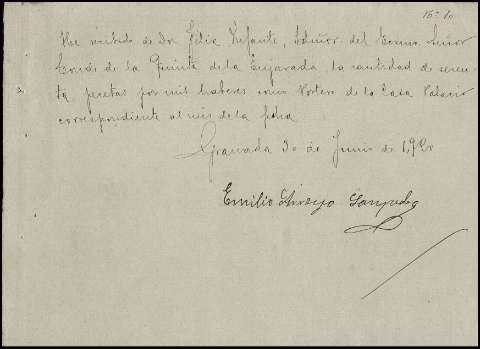 He recibido de Dn Felix Infante, Admor. del Excmo Señor
Conde de la Quinta de la Enjarada la cantidad de seten
ta pesetas por mis haberes como Portero de la Casa Palacio
correspondiente al mes de la fecha
Granada 30 de Junio de 1,920
Emilio Arroyo Sampedro